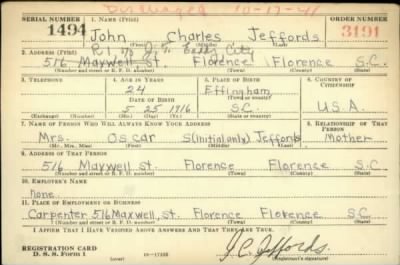 Discharged 10-17-41
SERIAL NUMBER 1. NAME (Print) ORDER NUMBER
1494 John Charles Jeffords 3191
(First) (Middle) (Last)
2. ADDRESS (Print)
516 Maxwell St. Florence Florence S.C.
(Number and street or R. F. D. number) (Town) (County) (State)
3. TELEPHONE 4. AGE IN YEARS 5. PLACE OF BIRTH 6. COUNTRY OF CITIZENSHIP
24 Effingham
DATE OF BIRTH (Town or county)
5 25 1916 S.C. U.S.A.
(Exchange) (Number) (Mo.) (Day) (Yr.) (State or country)
7. NAME OF PERSON WHO WILL ALWAYS KNOW YOUR ADDRESS 8. RELATIONSHIP OF THAT PERSON
Mrs. Oscar S(initial only) Jeffords Mother
(Mr., Mrs., Miss) (First) (Middle) (Last)
9. ADDRESS OF THAT PERSON
516 Maxwell St. Florence Florence S.C.
(Number and street or R. F. D. number) (Town) (County) (State)
10. EMPLOYER'S NAME
None.
11. PLACE OF EMPLOYMENT OR BUSINESS
Carpenter 516 Maxwell St. Florence Florence S.C.
(Number and street or R. F. D. number) (Town) (County) (State)
I AFFIRM THAT I HAVE VERIFIED ABOVE ANSWERS AND THAT THEY ARE TRUE.
REGISTRATION CARD
D. S. S. Form 1 (over) J C Jeffords.
(Registrant's signature)